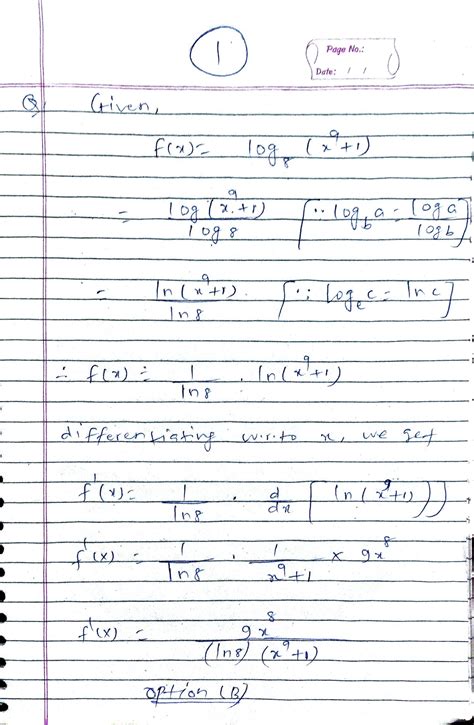 1
Page No.:
Date: / /
Q Given,
f(x) = log₈ (x⁹+1)
= log(x⁹+1) / log 8 [∵ log_b a = log a / log b]
= ln(x⁹+1) / ln 8 [∵ log_e c = ln c]
∴ f(x) = 1/ln8 · ln(x⁹+1)
differentiating w.r.to x, we get
f'(x) = 1/ln8 · d/dx [ln(x⁹+1)]
f'(x) = 1/ln8 · 1/(x⁹+1) × 9x⁸
f'(x) = 9x⁸ / (ln8) (x⁹+1)
option (B)